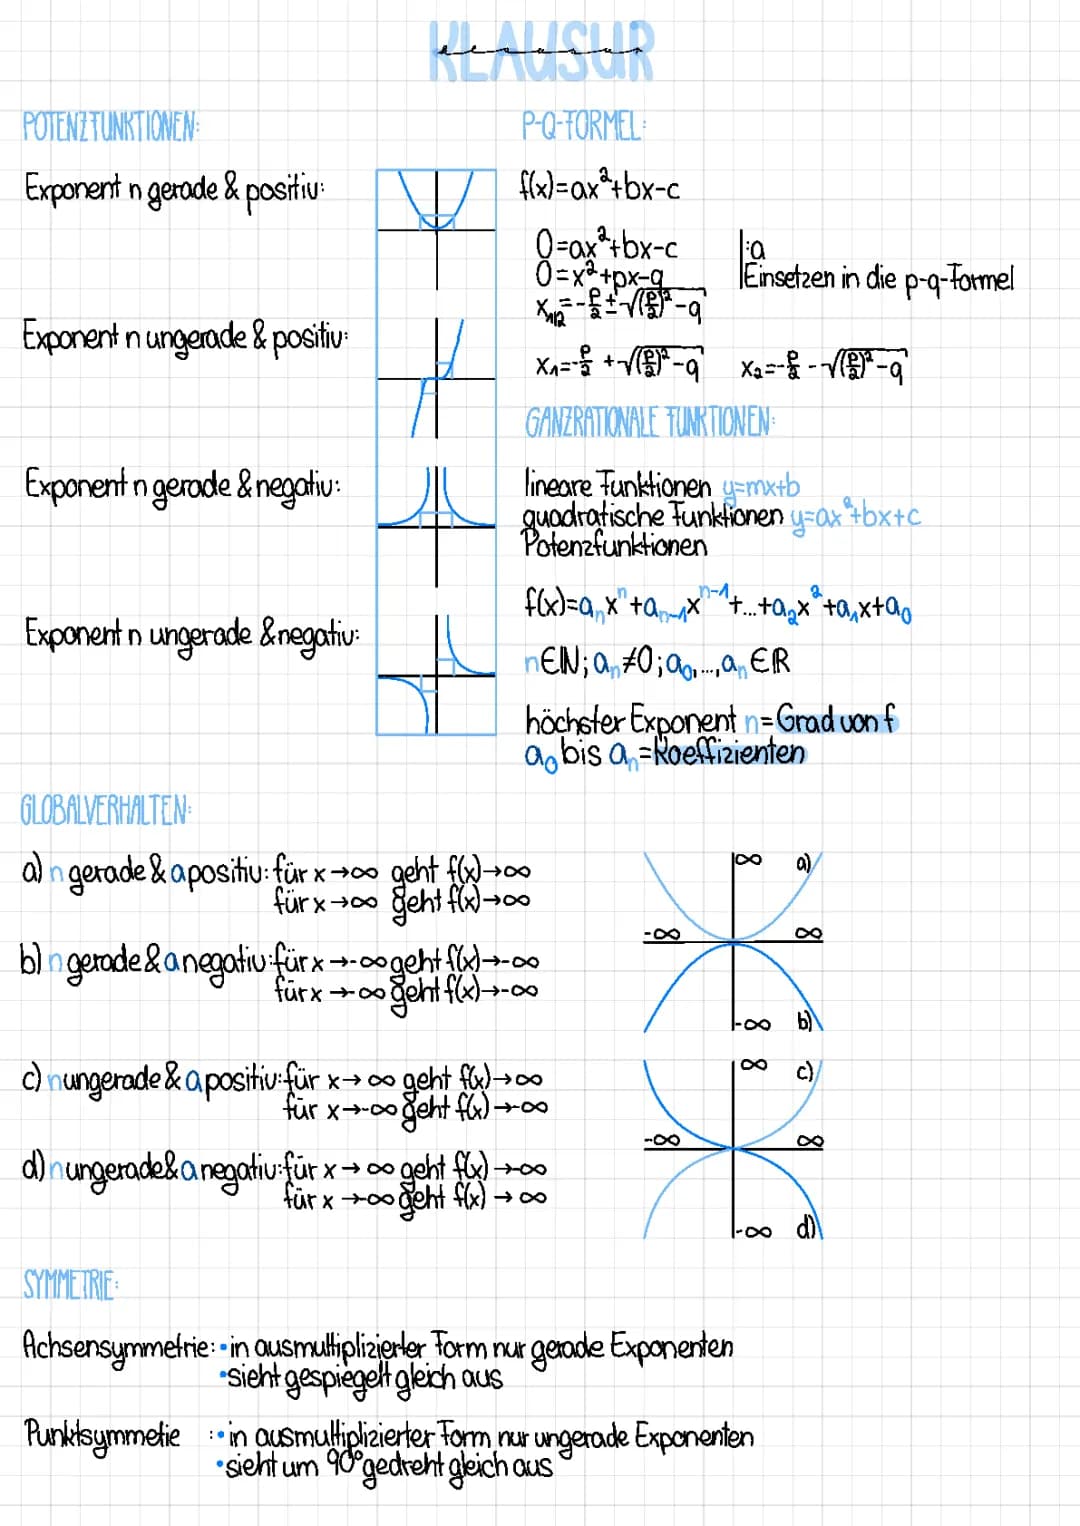 KLAUSUR
klausur
POTENZFUNKTIONEN:
Exponent n gerade & positiv:
Exponent n ungerade & positiv:
Exponent n gerade & negativ:
Exponent n ungerade & negativ:
P-Q-FORMEL:
f(x)=ax²+bx-c
0=ax²+bx-c |:a
0=x²+px-q |Einsetzen in die p-q-Formel
x₁/₂=-p/2±√(p/2)²-q
x₁=-p/2+√(p/2)²-q x₂=-p/2-√(p/2)²-q
GANZRATIONALE FUNKTIONEN:
lineare Funktionen y=mx+b
quadratische Funktionen y=ax²+bx+c
Potenzfunktionen
f(x)=aₙxⁿ+aₙ₋₁xⁿ⁻¹+...+a₂x²+a₁x+a₀
n∈ℕ; aₙ≠0; a₀,...,aₙ∈ℝ
höchster Exponent n=Grad von f
a₀ bis aₙ=Koeffizienten
GLOBALVERHALTEN:
a) n gerade & a positiv: für x→∞ geht f(x)→∞
für x→∞ geht f(x)→∞
b) n gerade & a negativ: für x→-∞ geht f(x)→-∞
für x→-∞ geht f(x)→-∞
c) n ungerade & a positiv: für x→∞ geht f(x)→∞
für x→-∞ geht f(x)→-∞
d) n ungerade & a negativ: für x→∞ geht f(x)→-∞
für x→-∞ geht f(x)→∞
∞ a)
-∞ ∞
-∞ b)
∞ c)
-∞ ∞
-∞ d)
SYMMETRIE:
Achsensymmetrie: •in ausmultiplizierter Form nur gerade Exponenten
•sieht gespiegelt gleich aus
Punktsymmetie : •in ausmultiplizierter Form nur ungerade Exponenten
•sieht um 90° gedreht gleich aus